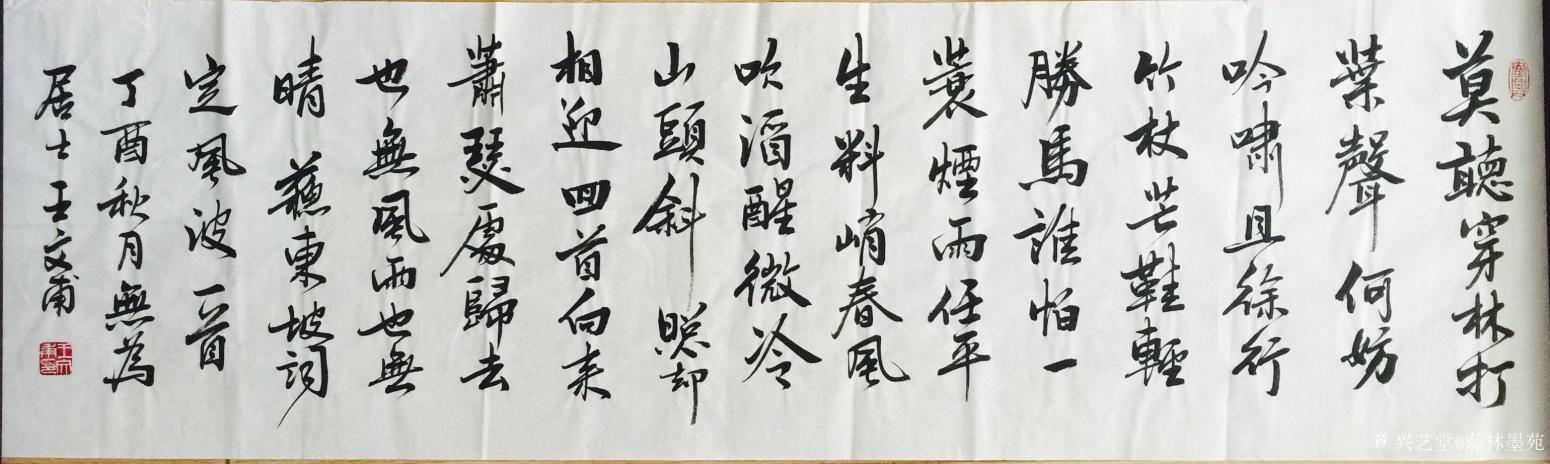 莫聽穿林打
葉聲何妨
吟嘯且徐行
竹杖芒鞋輕
勝馬誰怕一
蓑煙雨任平
生料峭春風
吹酒醒微冷
山頭斜照却
相迎回首向来
蕭瑟處歸去
也無風雨也無
晴 蘇東坡詞
定風波一首
丁酉秋月無為
居士王文甫
兴艺堂@瀚林墨苑